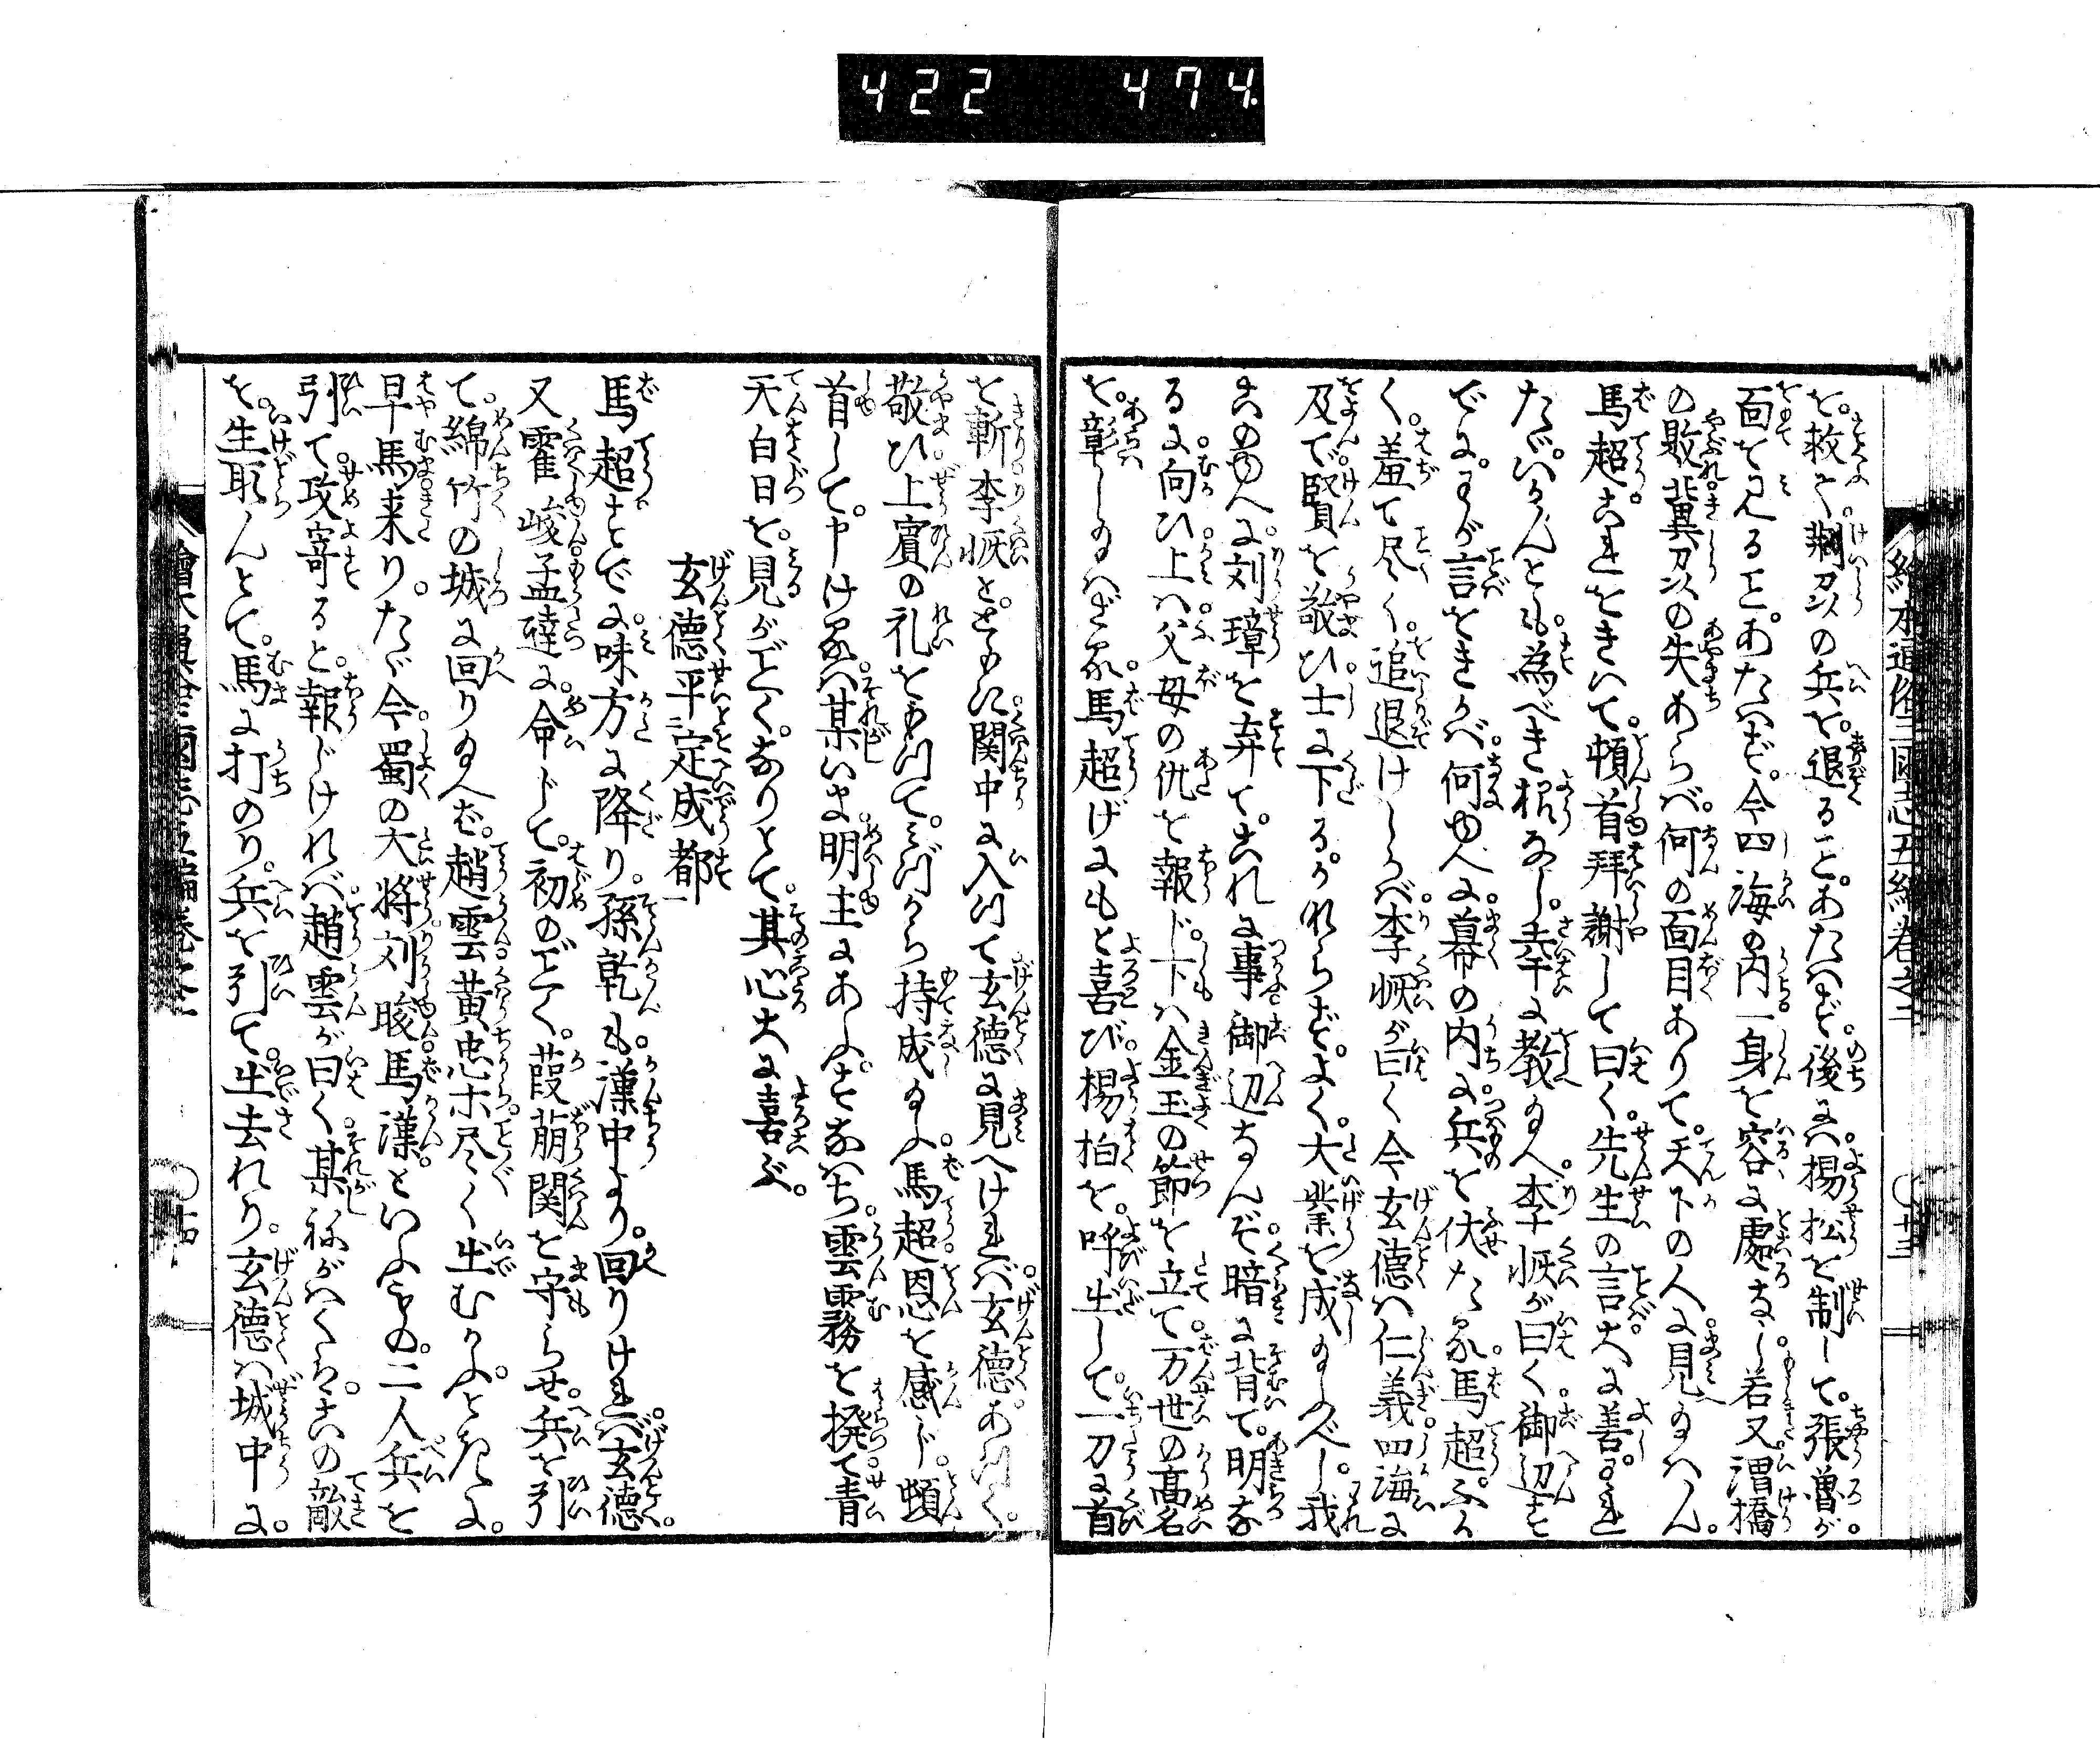 422 474.
絵本通俗三国志五編巻之二 ○廿三
を。救て。荊州の兵を。退ること。あたはず。後には。楊松を制して。張魯が。
面を見ること。あたはず。今四海の内。一身を容に處なし。若又。渭橋
の敗。冀州の失あらば。何の面目ありて。天下の人に見え給はん。
馬超。これをきいて。頓首拝謝して曰く。先生の言大に善。され
ども。いかんとも。為べき様なし。幸に教給へ。李恢が曰く。御辺す
でに。わが言をきかば。何ゆへに。幕の内に。兵を伏たる。馬超。ふか
く。羞て尽く。追退けしかば。李恢が曰く今玄徳は仁義四海に
及で。賢を敬ひ。士に下る。かれらず。よく。大業を成給ふべし。我
このゆへに。刘璋を弃て。これに事。御辺なんぞ。暗に背て。明な
るに。向ひ。上は。父母の仇を報じ。下は金玉の節を立て。万世の高名
を。彰し給はざる。馬超げにもと喜び。楊柏を。呼出して。一刀に首
を斬。李恢と。ともに。関中に入りて玄徳に見へければ。玄徳。あつく。
敬ひ。上賓の礼をもつて。みづから持成給ふ。馬超。恩を感じ。頓
首して。申けるは。某いま。明主にあふ。すなはち。雲霧を撥て。青
天白日を。見がごとく。なりとて。其心大に喜ぶ。
玄徳平定成都
馬超すでに。味方に降り。孫乾も。漢中より。回りければ。玄徳。
又霍峻孟達に。命じて。初のごとく。葭萌関を守らせ。兵を引
て。綿竹の城に回り給へば。趙雲黄忠ホ尽く出むかふ。ときに。
早馬来り。たゞ今。蜀の大将刘晙馬漢といふもの。二人兵を
引て。攻寄ると。報じければ。趙雲が曰く。某ねがはくは。この敵
を。生取んとて。馬に打のり。兵を引て。出去れり。玄徳は城中に。